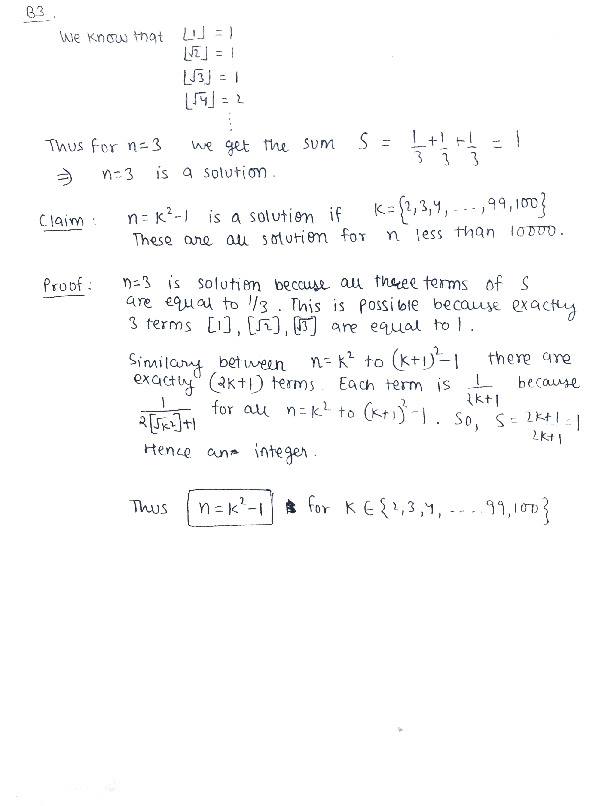 B3.
We know that ⌊1⌋ = 1
⌊√2⌋ = 1
⌊√3⌋ = 1
⌊√4⌋ = 2
⋮
Thus for n=3 we get the sum S = 1/3 + 1/3 + 1/3 = 1
⇒ n=3 is a solution.
Claim : n = k²-1 is a solution if K={2,3,4, ...,99,100}
These are all solution for n less than 10000.
Proof : n=3 is solution because all three terms of S
are equal to 1/3. This is possible because exactly
3 terms [1], [√2], [√3] are equal to 1.
Similary between n=k² to (k+1)²-1 there are
exactly (2k+1) terms. Each term is 1/(2k+1) because
1/(2[√k²]+1) for all n=k² to (k+1)²-1. So, S = (2k+1)/(2k+1) = 1
Hence an integer.
Thus n=k²-1 for K ∈ {2,3,4, .....99,100}